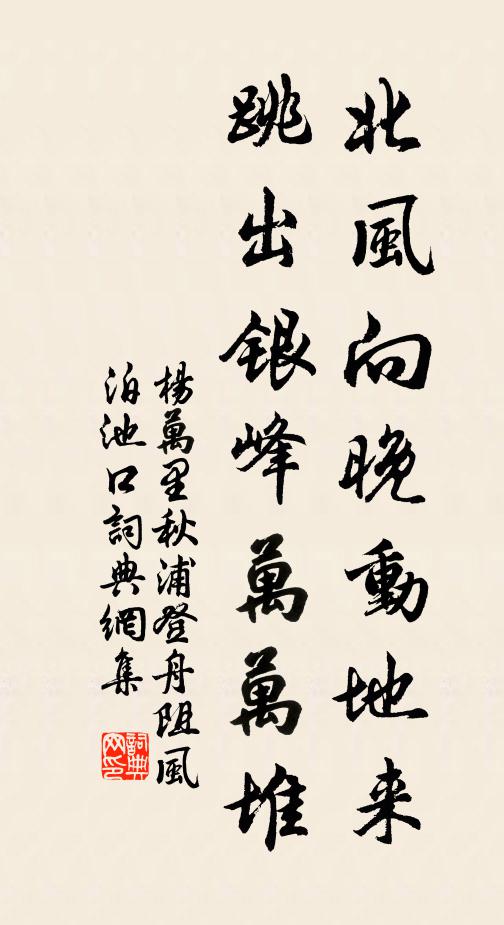 北風向晚動地来
跳出銀峰萬萬堆
楊萬里秋浦登舟阻風
泊池口詞典網集
詞典
网印